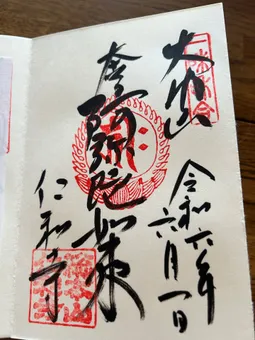 大内山
令和六年
六月一日
本尊阿弥陀如来
仁和寺